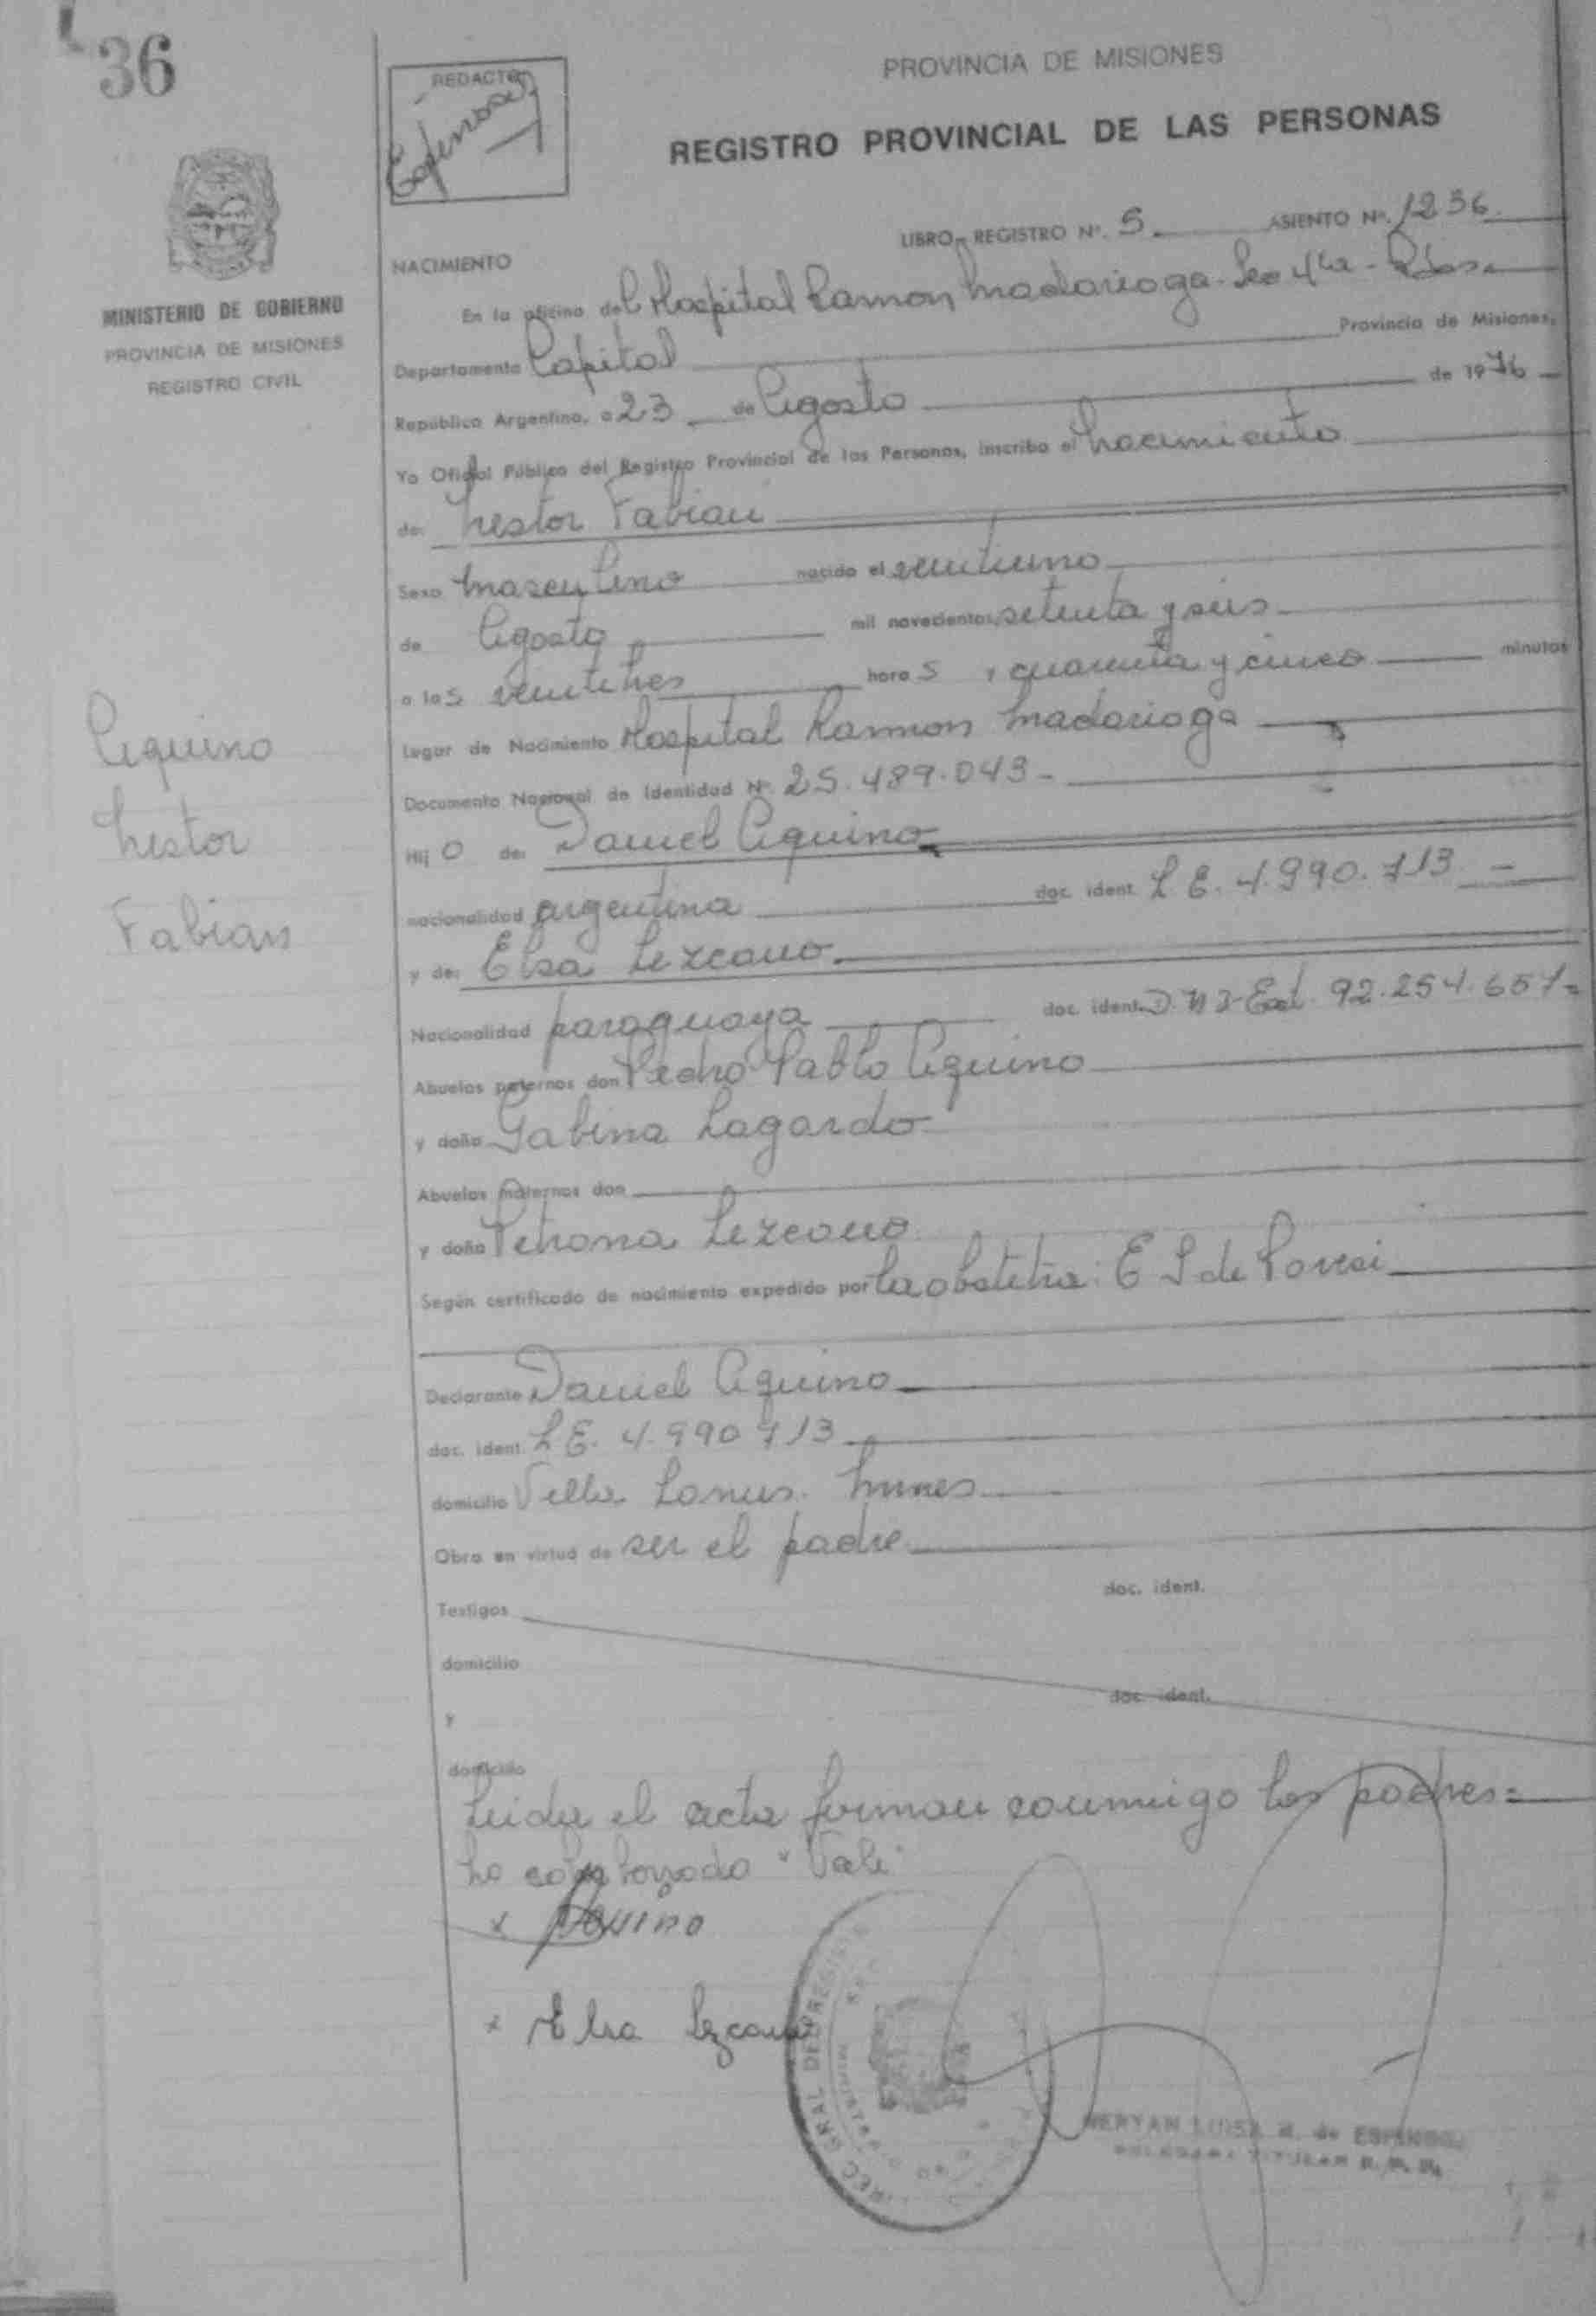 36
REDACTO
PROVINCIA DE MISIONES
REGISTRO PROVINCIAL DE LAS PERSONAS
MINISTERIO DE GOBIERNO
PROVINCIA DE MISIONES
REGISTRO CIVIL
LIBRO REGISTRO Nº. 5 ASIENTO Nº. 1236
NACIMIENTO
En la oficina del Hospital Ramon Madariaga
Departamento Capital Provincia de Misiones,
República Argentina, a 23 de Agosto de 1976
Yo Oficial Público del Registro Provincial de las Personas, inscribo el nacimiento
de: Nestor Fabian
Sexo masculino nacido el veintiuno
de Agosto mil novecientos setenta y seis
a las veintitres horas, cuarenta y cinco minutos
Lugar de Nacimiento Hospital Ramon Madariaga
Documento Nacional de Identidad Nº 25.489.043
Hijo de: Daniel Aquino
nacionalidad argentina doc. ident. L E. 4.990.713
y de: Elsa Lezcano
Nacionalidad paraguaya doc. ident. D N I Ext. 92.254.657
Abuelos paternos don Pedro Pablo Aquino
y doña Gabina Lagardo
Abuelos maternos don
y doña Petrona Lezcano
Según certificado de nacimiento expedido por la obstetra: E
Declarante Daniel Aquino
doc. ident. L E. 4.990 713
domicilio Villa Lanus. Mnes
Obra en virtud de ser el padre
Testigos doc. ident.
domicilio
y doc. ident.
domicilio
Leida el acta firman conmigo los padres
"Vale"
x Aquino
x Elsa Lezcano
Aquino
Nestor
Fabian
LUISA de